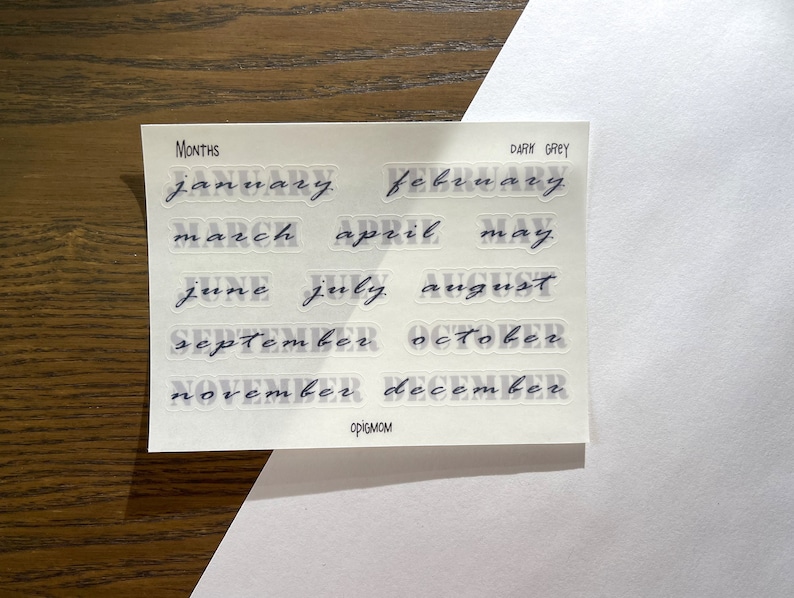 Months DARK GREY
JANUARY january FEBRUARY february
MARCH march APRIL april MAY may
JUNE june JULY july AUGUST august
SEPTEMBER september OCTOBER october
NOVEMBER november DECEMBER december
OPIGMOM